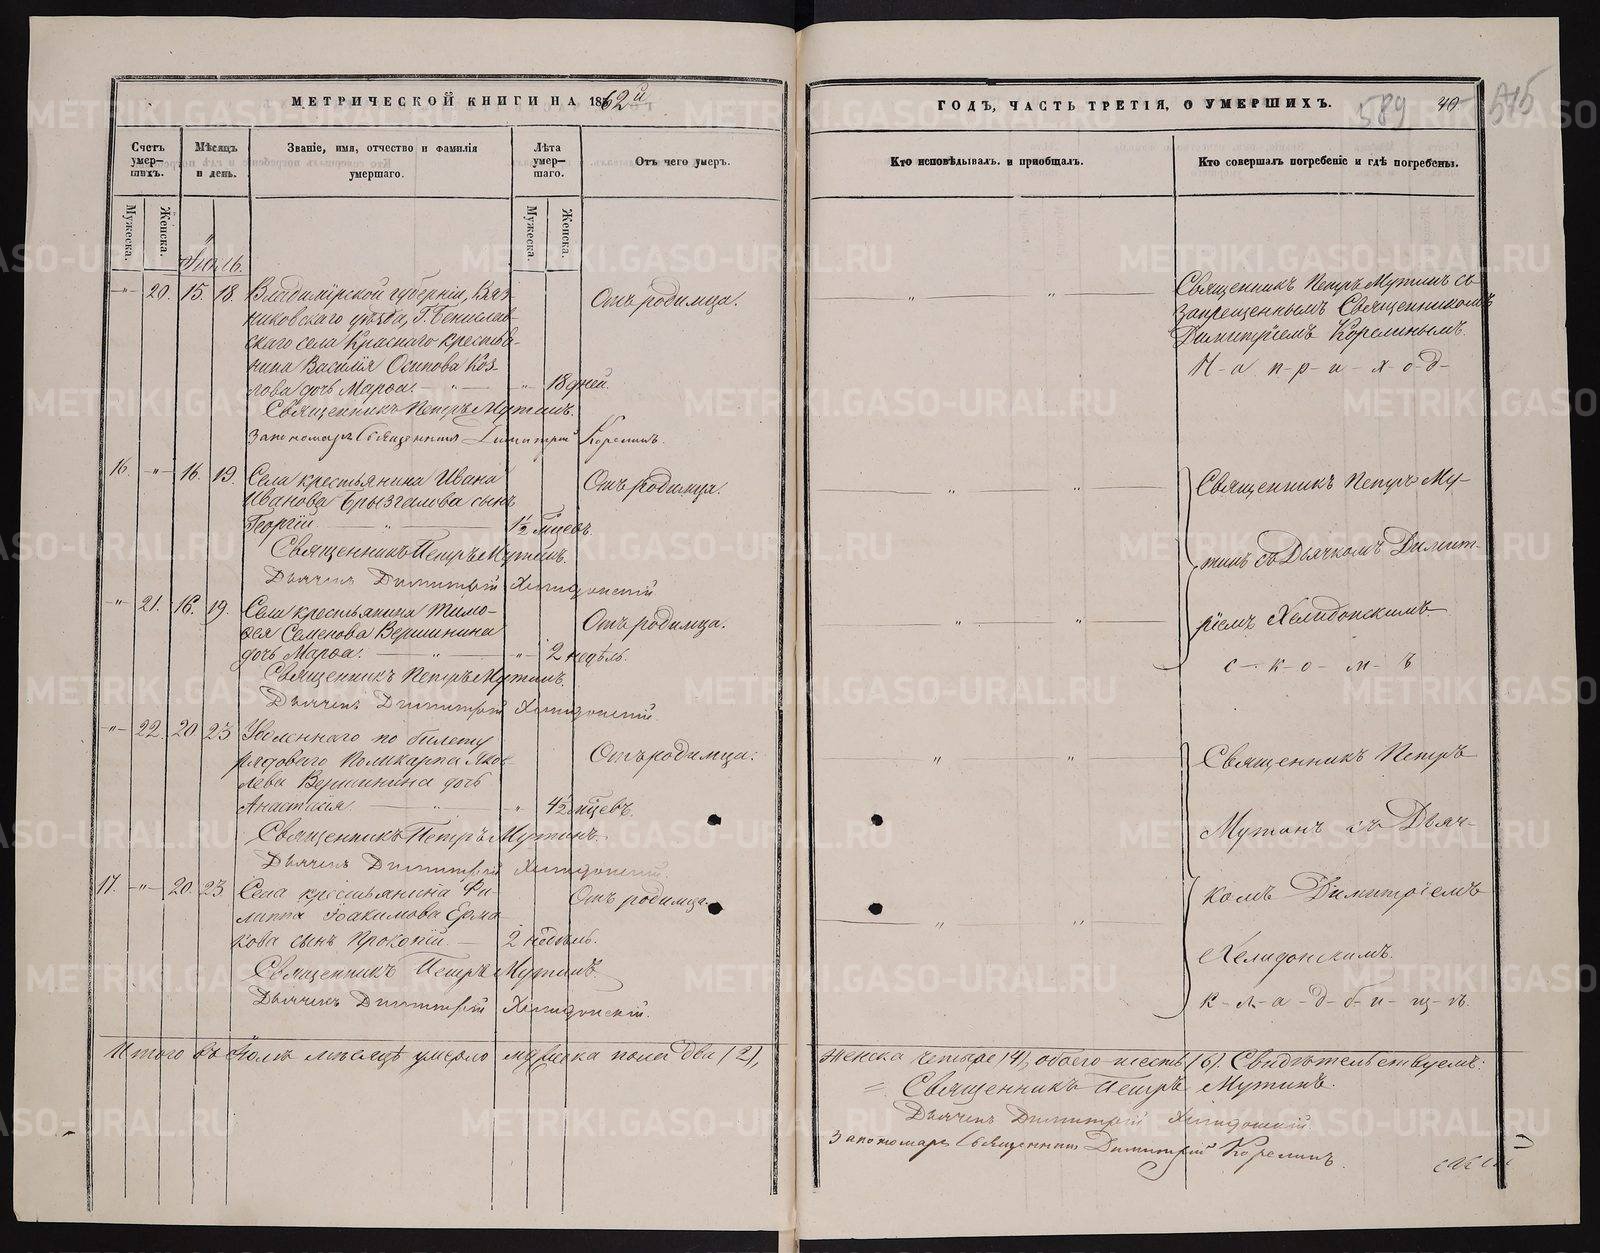 МЕТРИЧЕСКОЙ КНИГИ НА 1862й
Счетъ умер-шихъ.
Мѣсяцъ и день.
Званіе, имя, отчество и фамилія умершаго.
Лѣта умер-шаго.
Отъ чего умеръ.
Мужеска.
Женска.
Мужеска.
Женска.
Іюль.
-"- 20. 15. 18. Владимірской губерніи, Вяз-
никовскаго уѣзда,
скаго села Краснаго крестья-
нина Василія Осипова Коз-
лова дочь Марѳа. -"- 18 дней. Отъ родимца.
Священникъ Петръ Мутинъ.
За пономаря Священникъ Димитрій Корелинъ.
16. -"- 16. 19. Села крестьянина Ивана
Иванова Брызгалова сынъ
Георгій. 1½ мѣсяцевъ. Отъ родимца.
Священникъ Петръ Мутинъ.
Дьячекъ Димитрій Хелидонскій
-"- 21. 16. 19. Села крестьянина Тимо-
ѳея Семенова Вершинина
дочь Марѳа. -"- 2 недѣль. Отъ родимца.
Священникъ Петръ Мутинъ.
Дьячекъ Димитрій Хелидонскій.
-"- 22. 20 23 Уволеннаго по билету
рядоваго Поликарпа Яков-
лева Вершинина дочь
Анастасія. " 4½ мѣсцевъ. Отъ родимца.
Священникъ Петръ Мутинъ.
Дьячекъ Димитрій Хелидонскій.
17. -"- 20. 23. Села крестьянина Фи-
липпа Іоакимова Ерма-
кова сынъ Прокопій. 2 недѣль. Отъ родимца.
Священникъ Петръ Мутинъ
Дьячекъ Димитрій Хелидонскій.
Итого въ Іюлѣ мѣсяцѣ умерло мужеска пола два (2),
ГОДЪ, ЧАСТЬ ТРЕТІЯ, О УМЕРШИХЪ.
589
40
Кто исповѣдывалъ. и пріобщалъ.
Кто совершалъ погребеніе и гдѣ погребены.
Священникъ Петръ Мутинъ съ
запрещеннымъ Священникомъ
Димитріемъ Корелинымъ.
Н-а п-р-и-х-о-д-
Священникъ Петръ Му-
тинъ съ Дьячкомъ Димит-
ріемъ Хелидонскимъ
с-к-о-м-ъ
Священникъ Петръ
Мутинъ съ Дьяч-
комъ Димитріемъ
Хелидонскимъ.
к-л-а-д-б-и-щ-ѣ.
Женска четыре (4), обоего шесть (6). Свидѣтельствуемъ:
= Священникъ Петръ Мутинъ.
Дьячекъ Димитрій Хелидонскій.
За пономаря Священникъ Димитрій Корелинъ.
METRIKI.GASO-URAL.RU